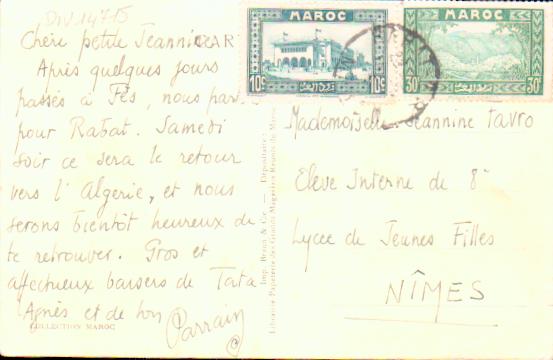 DIV 14715
Chère petite Jeannine
CAR
Après quelques jours
passés à Fès, nous par
pour Rabat. Samedi
soir ce sera le retour
vers l'Algérie, et nous
serons bientôt heureux de
te retrouver. Gros et
affectueux baisers de Tata
Agnès et de ton Parrain
COLLECTION MAROC
Imp. & Cie. — Dépositaire:
Librairie Papeterie des Grands Magasins du Maroc
MAROC
10c 10c
MAROC
30c 30c
Mademoiselle Jeannine Favro
Elève Interne de 8e
Lycée de Jeunes Filles
NÎMES